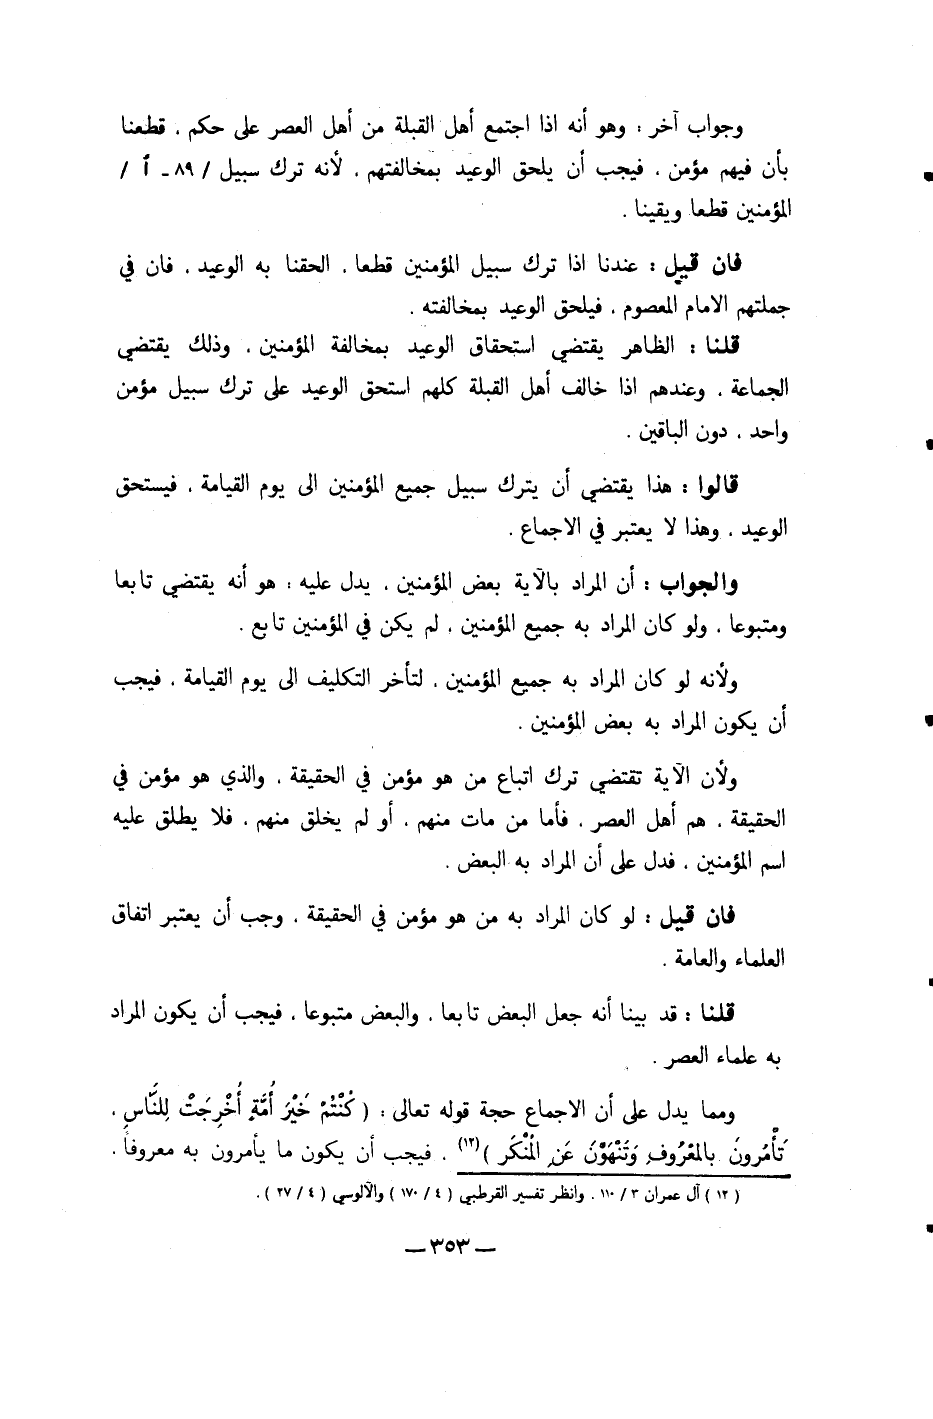 وجواب آخر : وهو أنه اذا اجتمع أهل القبلة من أهل العصر على حكم ، قطعنا
بأن فيهم مؤمن ، فيجب أن يلحق الوعيد بمخالفتهم ، لأنه ترك سبيل / ٨٩ ـ أ /
المؤمنين قطعا ويقينا .
فان قيل : عندنا اذا ترك سبيل المؤمنين قطعا ، الحقنا به الوعيد ، فان في
جملتهم الامام المعصوم ، فيلحق الوعيد بمخالفته .
قلنا : الظاهر يقتضي استحقاق الوعيد بمخالفة المؤمنين ، وذلك يقتضي
الجماعة ، وعندهم اذا خالف أهل القبلة كلهم استحق الوعيد على ترك سبيل مؤمن
واحد ، دون الباقين .
قالوا : هذا يقتضي أن يترك سبيل جميع المؤمنين الى يوم القيامة ، فيستحق
الوعيد ، وهذا لا يعتبر في الاجماع .
والجواب : أن المراد بالآية بعض المؤمنين ، يدل عليه : هو أنه يقتضي تابعا
ومتبوعا ، ولو كان المراد به جميع المؤمنين ، لم يكن في المؤمنين تابع .
ولأنه لو كان المراد به جميع المؤمنين ، لتأخر التكليف الى يوم القيامة ، فيجب
أن يكون المراد به بعض المؤمنين .
ولأن الآية تقتضي ترك اتباع من هو مؤمن في الحقيقة ، والذي هو مؤمن في
الحقيقة ، هم أهل العصر ، فأما من مات منهم ، أو لم يخلق منهم ، فلا يطلق عليه
اسم المؤمنين ، فدل على أن المراد به البعض .
فان قيل : لو كان المراد به من هو مؤمن في الحقيقة ، وجب أن يعتبر اتفاق
العلماء والعامة .
قلنا : قد بينا أنه جعل البعض تابعا ، والبعض متبوعا ، فيجب أن يكون المراد
به علماء العصر .
ومما يدل على أن الاجماع حجة قوله تعالى : ( كُنْتُمْ خَيْرَ أُمَّةٍ أُخْرِجَتْ لِلنَّاسِ ،
تَأْمُرونَ بالمَعْرُوفِ وَتَنْهَوْنَ عَنِ المُنْكَر )(١٢) . فيجب أن يكون ما يأمرون به معروفاً ،
( ١٢ ) آل عمران ٣ / ١١٠ . وانظر تفسير القرطبي ( ٤ / ١٧٠ ) والآلوسي ( ٤ / ٢٧ ) .
— ٣٥٣ —